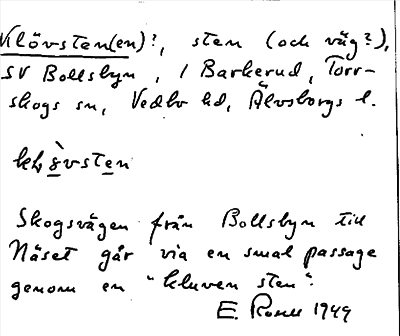 Klövsten(en)?, sten (och väg?),
SV Bollsbyn, 1 Barkerud, Torr-
skogs sn, Vedbo hd, Älvsborgs l.
Skogsvägen från Bollsbyn till
Näset går via en smal passage
genom en "kluven sten".
E. 1949